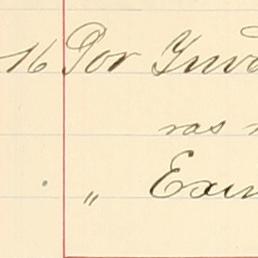 16 Por Inv
ras
. „ Exm